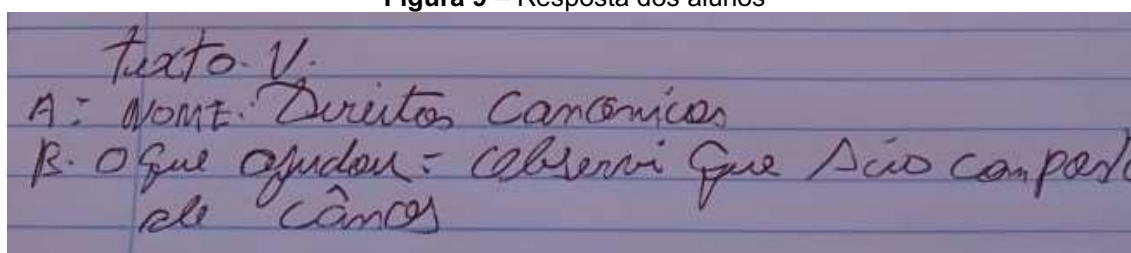 Figura 9 – Resposta dos alunos
Texto. V.
A: NOME: Direitos Canonicos
B. O que ajudou = observi que São compost
de cânos